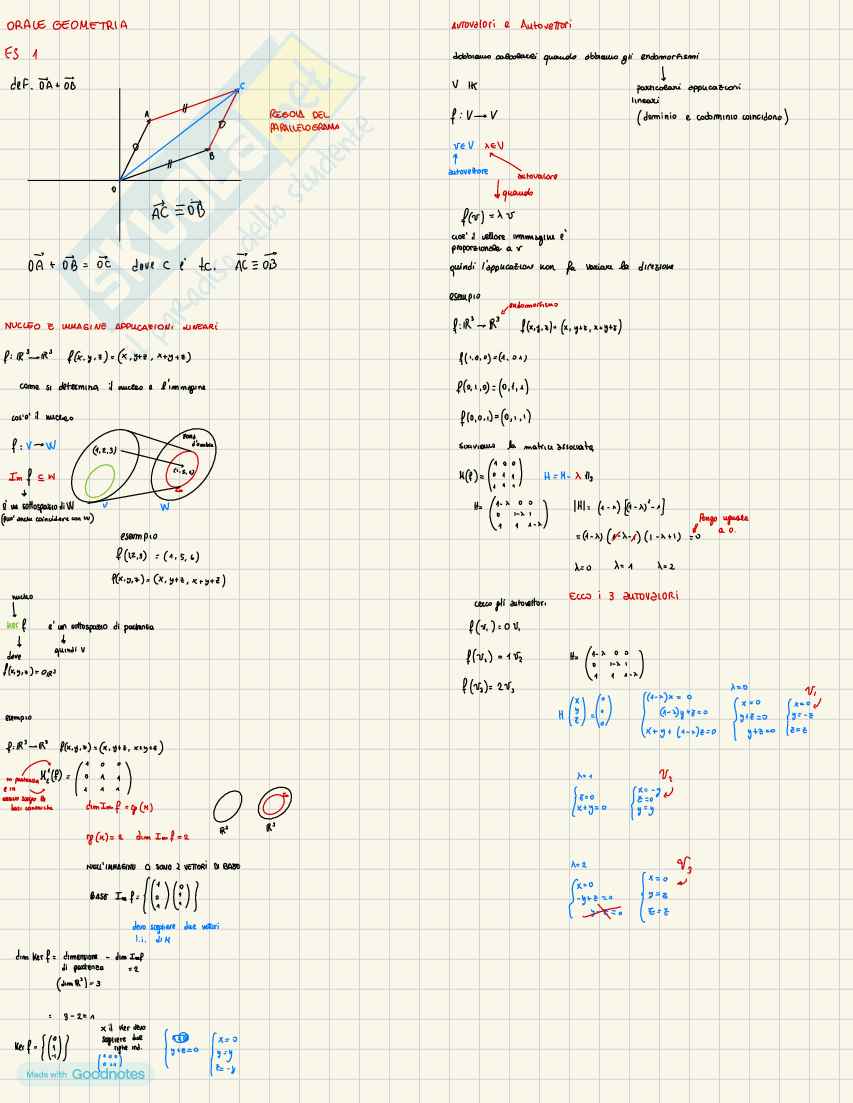 ORALE GEOMETRIA
ES 1
def. OA + OB
A
C
B
O
REGOLA DEL
PARALLELOGRAMMA
AC ≡ OB
OA + OB = OC dove C è t.c. AC ≡ OB
NUCLEO E IMMAGINE APPLICAZIONI LINEARI
f: R³ → R³ f(x,y,z) = (x, y+z, x+y+z)
come si determina il nucleo e l'immagine
cos'è il nucleo
f: V → W
(1,2,3)
Im f ⊆ W
è un sottospazio di W
(può anche coincidere con W)
V
W
esempio
f(1,2,3) = (1,5,6)
f(x,y,z) = (x, y+z, x+y+z)
nucleo
ker f è un sottospazio di partenza
dove quindi V
f(x,y,z) = 0R³
esempio
f: R³ → R³ f(x,y,z) = (x, y+z, x+y+z)
(1 0 0
0 1 1
1 1 1)
in partenza
e in
arrivo scelgo le
basi canoniche
dim Im f = rg(M)
R³
R³
rg(M) = 2 dim Im f = 2
NELL'IMMAGINE CI SONO 2 VETTORI DI BASE
BASE Im f = {(1 0 1) (0 1 1)}
devo scegliere due vettori
l.i. di M
dim Ker f = dimensione - dim Im f
di partenza = 2
(dim R³) = 3
= 3 - 2 = 1
Ker f = {(0 1 -1)}
x il Ker devo
scegliere due
righe ind.
y+z=0
x=0
y=y
z=-y
Made with Goodnotes
AUTOVALORI e AUTOVETTORI
dobbiamo calcolarli quando abbiamo gli endomorfismi
V K
particolari applicazioni
lineari
(dominio e codominio coincidono)
f: V → V
v∈V λ∈V
autovettore
autovalore
quando
f(v) = λv
cioè il vettore immagine è
proporzionale a v
quindi l'applicazione non fa variare la direzione
esempio
endomorfismo
f: R³ → R³ f(x,y,z) = (x, y+z, x+y+z)
f(1,0,0) = (1,0,1)
f(0,1,0) = (0,1,1)
f(0,0,1) = (0,1,1)
scriviamo la matrice associata
M(f) = (1 0 0
0 1 1
1 1 1)
H = M - λ I3
H = (1-λ 0 0
0 1-λ 1
1 1 1-λ)
|H| = (1-λ) [(1-λ)² - 1]
= (1-λ) (1-λ-1) (1-λ+1) = 0
Pongo uguale
a 0.
λ=0 λ=1 λ=2
ECCO I 3 AUTOVALORI
cerco gli autovettori
f(v1) = 0v1
f(v2) = 1v2
f(v3) = 2v3
H = (1-λ 0 0
0 1-λ 1
1 1 1-λ)
H (x y z) = (0 0 0)
(1-λ)x = 0
(1-λ)y+z=0
x+y+(1-λ)z=0
λ=0
x=0
y+z=0
y+z=0
V1
x=0
y=-z
z=z
λ=1
z=0
x+y=0
V2
x=-y
z=0
y=y
λ=2
x=0
-y+z=0
V3
x=0
y=z
z=z
skuola.net
il paradiso dello studente